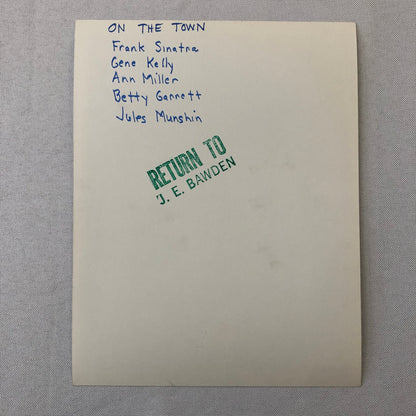 ON THE TOWN
Frank Sinatra
Gene Kelly
Ann Miller
Betty Garrett
Jules Munshin
RETURN TO
J. E. BAWDEN